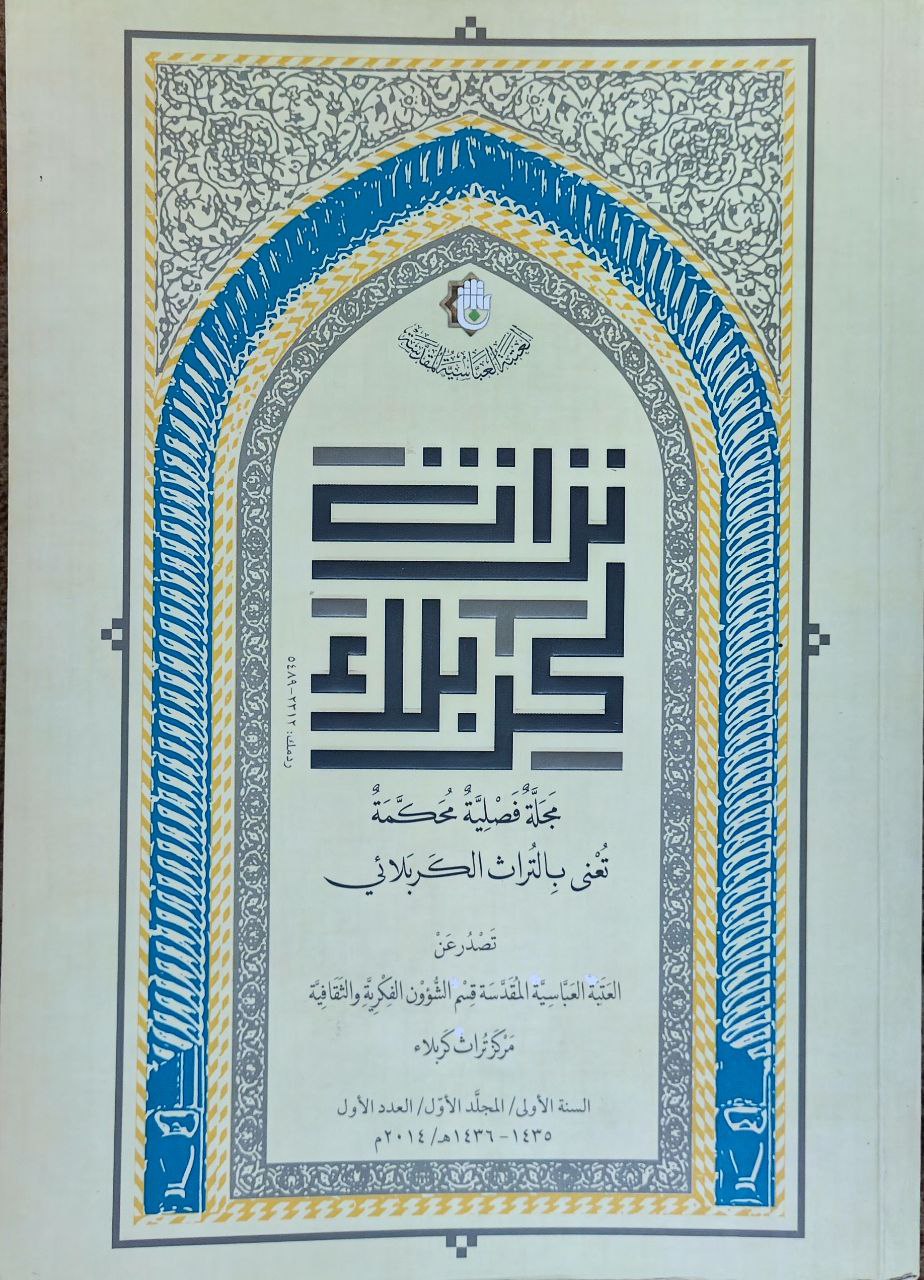 العتبة العباسية المقدسة
تراث
كربلاء
ردمك: ٢٣١٢-٥٤٨٩
مَجَلَّةٌ فَصْلِيَّةٌ مُحَكَّمَةٌ
تُعْنى بِالتُراث الكَربَلائي
تَصْدُر عَنْ
العَتَبَة العَبَّاسِيَّة المُقَدَّسَة قِسْم الشُّؤُون الفِكْرِيَّة والثَّقَافِيَّة
مَرْكَز تُراث كَربلاء
السنة الأولى/ المجلَّد الأوّل/ العدد الأول
١٤٣٥- ١٤٣٦هـ/ ٢٠١٤م